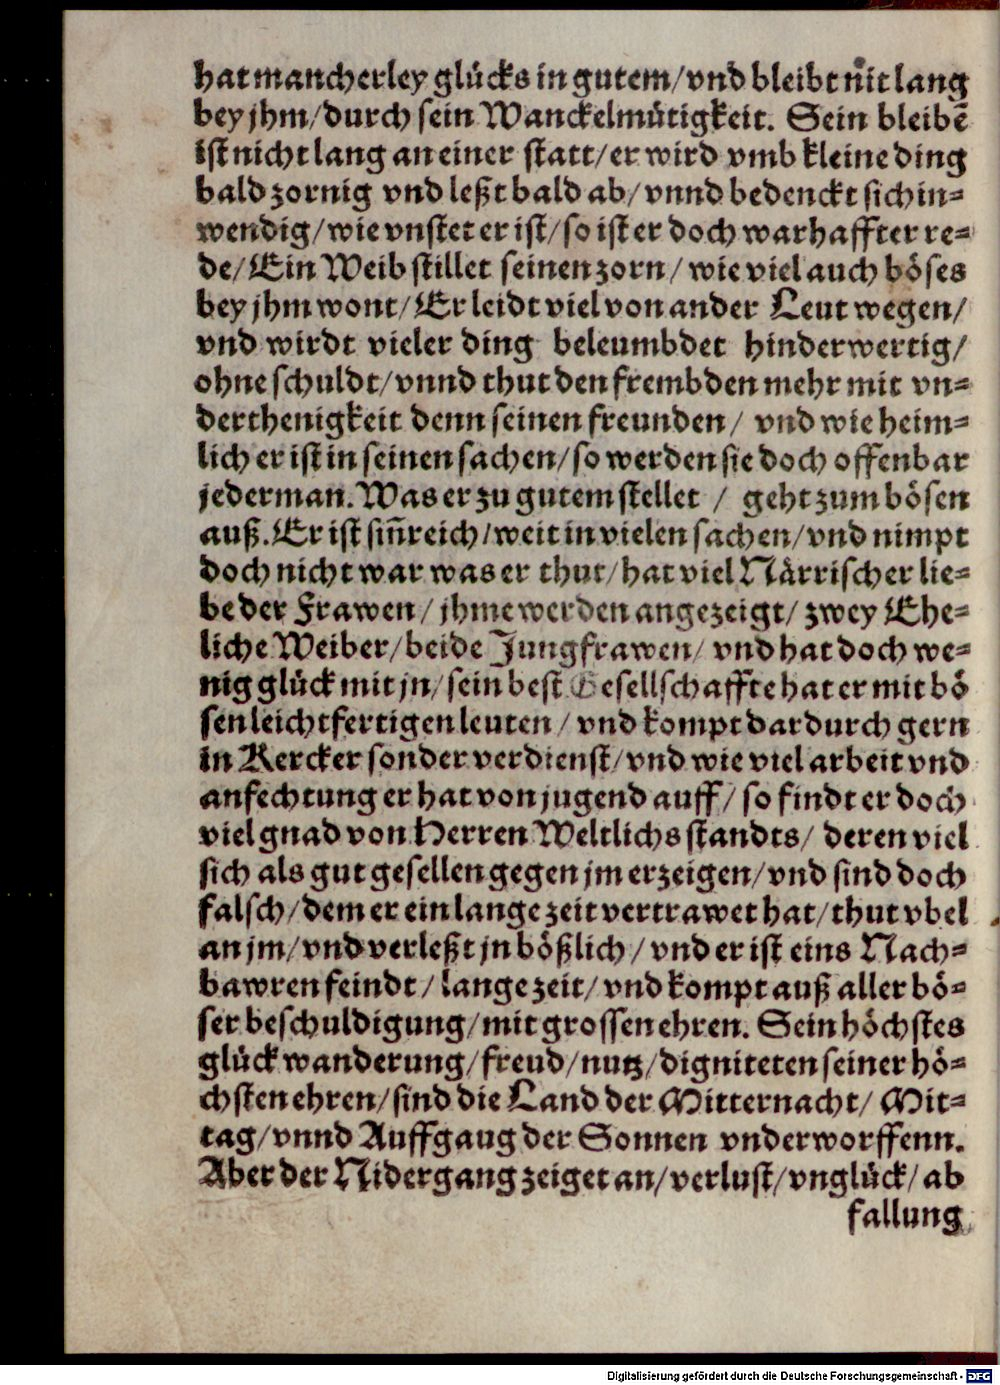 hat mancherley glücks in gutem/vnd bleibt nit lang
bey jhm/durch sein Wanckelmütigkeit. Sein bleibē
ist nicht lang an einer statt/er wird vmb kleine ding
bald zornig vnd leßt bald ab/vnnd bedenckt sich in-
wendig/wie vnstet er ist/so ist er doch warhaffter re-
de/Ein Weib stillet seinen zorn/wie viel auch böses
bey jhm wont/Er leidt viel von ander Leut wegen/
vnd wirdt vieler ding beleumbdet hinderwertig/
ohne schuldt/vnnd thut den frembden mehr mit vn-
derthenigkeit denn seinen freunden/ vnd wie heim-
lich er ist in seinen sachen/so werden sie doch offenbar
jederman. Was er zu gutem stellet / geht zum bösen
auß. Er ist siñreich/weit in vielen sachen/vnd nimpt
doch nicht war was er thut/hat viel Närrischer lie-
be der Frawen/jhme werden angezeigt/zwey Ehe-
liche Weiber/beide Jungfrawen/vnd hat doch we-
nig glück mit jn/sein best Gesellschaffte hat er mit bö
sen leichtfertigen leuten/vnd kompt dardurch gern
in Kercker sonder verdienst/vnd wie viel arbeit vnd
anfechtung er hat von jugend auff/so findt er doch
viel gnad von Herren Weltlichs standts/deren viel
sich als gut gesellen gegen jm erzeigen/vnd sind doch
falsch/dem er ein lange zeit vertrawet hat/thut vbel
an jm/vnd verleßt jn bößlich/vnd er ist eins Nach-
bawren feindt/lange zeit/vnd kompt auß aller bö-
ser beschuldigung/mit grossen ehren. Sein höchstes
glück wanderung/freud/nutz/digniteten seiner hö-
chsten ehren/sind die Land der Mitternacht/Mit-
tag/vnnd Auffgaug der Sonnen vnderworffenn.
Aber der Nidergang zeiget an/verlust/vnglück/ab
fallung
Digitalisierung gefördert durch die Deutsche Forschungsgemeinschaft - DFG